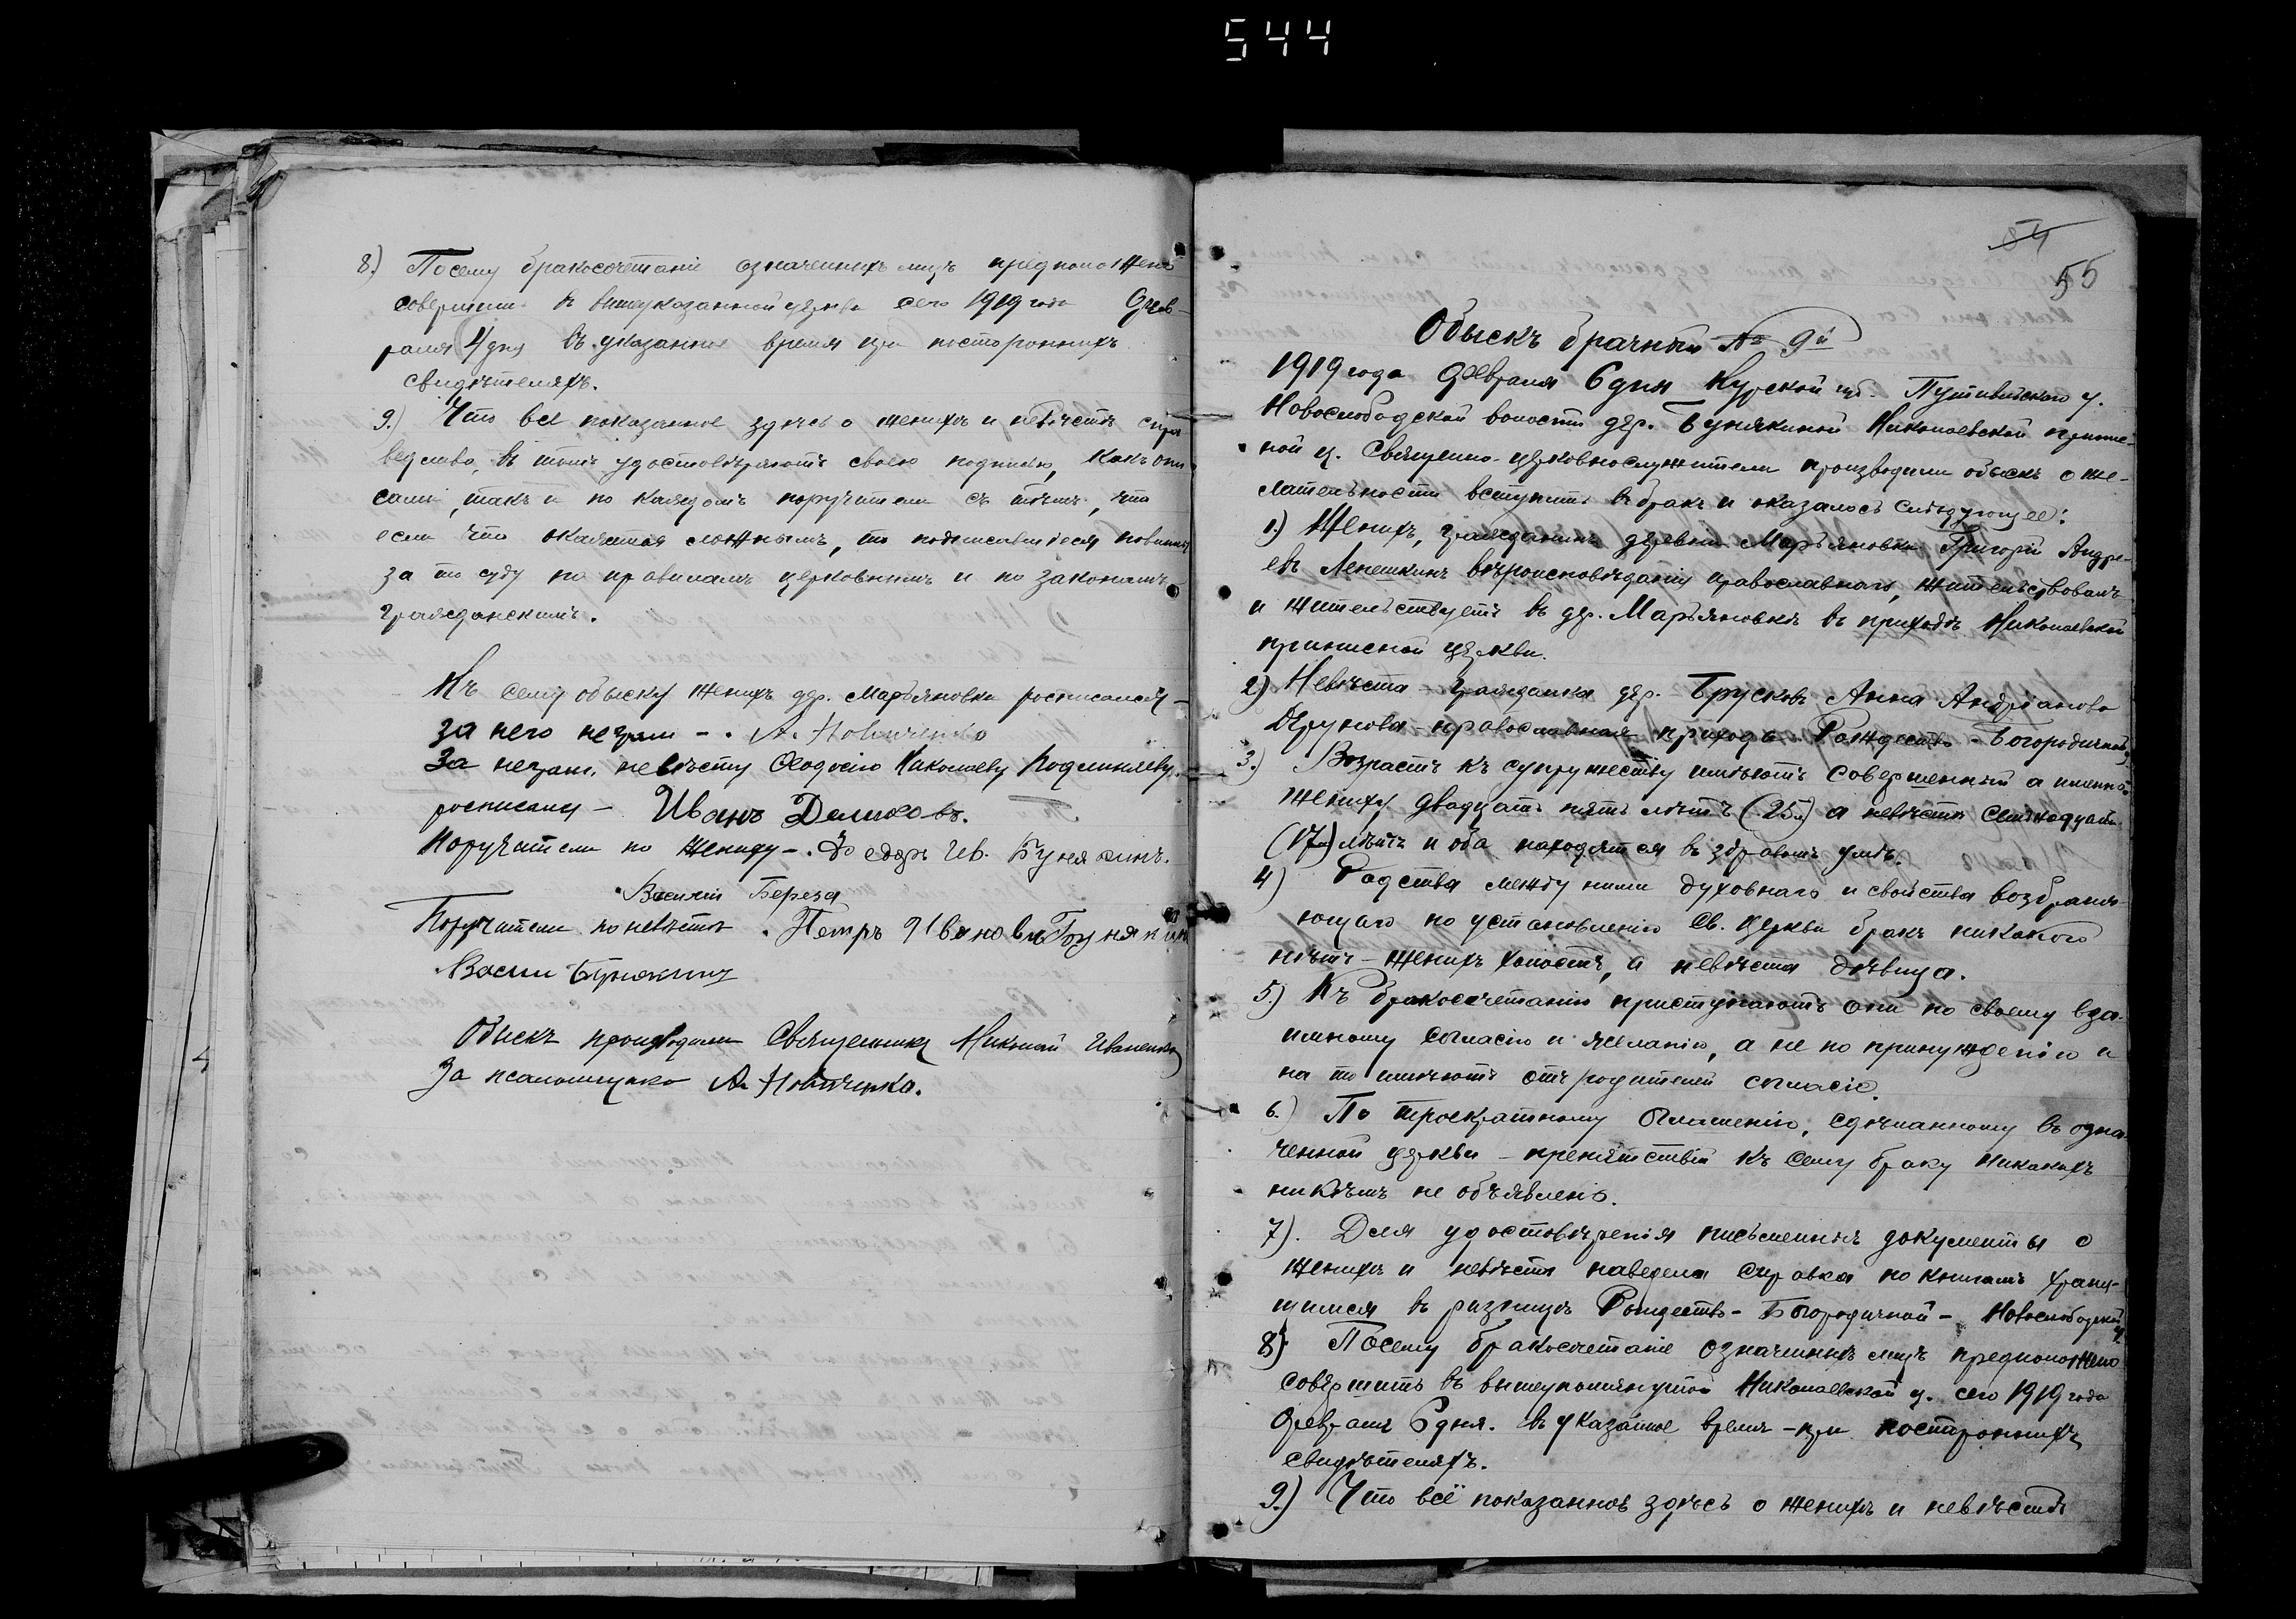 544
8.) Посему бракосочетаніе означенныхъ лицъ предположено
совершить въ вышеуказанной церкви сего 1919 года Февъ-
раля 4 дня въ указанное время при постороннихъ
свидѣтеляхъ.
9.) Что все показанное здѣсь о женихѣ и невѣстѣ спра
ведливо, въ томъ удостовѣряютъ своею подписью, какъ они
сами, такъ и по каждомъ поручители съ тѣмъ, что
если что окажется ложнымъ, то подписавшіеся повинны
за то суду по правиламъ церковнымъ и по законамъ
гражданскимъ.
Къ сему обыску женихъ дер. Марьяновки росписался -
за него неграм - . А. Новиченко
За неграм. невѣсту Ѳеодосію Николаеву
росписался - Иванъ
Поручители по жениху - . Федоръ Ив. Бунякинъ.
Василій Береза
Поручители по невѣстѣ . Петръ Ивановъ Бунякин
Васили
Обыскъ производили Священникъ Николай Иваненко
За псаломщика А. Новиченко.
54
55
Обыскъ брачный № 9й
1919 года Февраля 6 дня Курской губ. Путивльскаго у.
Новослободской волости дер. Бунякиной Николаевской припис-
ной ц. Священно-церковнослужители производили обыскъ о же-
лательности вступить въ бракъ и оказалось слѣдующее:
1.) Женихъ, гражданинъ деревни Марьяновки Григорій Андре-
евъ Лепешкинъ вѣроисповѣданія православнаго, жительствовалъ
и жительствуетъ въ дер. Марьяновкѣ въ приходѣ Николаевской
приписной церкви.
2) Невѣста - гражданка дер. Брусковъ Анна Андріанова
Дерунова - православная приходъ - Рождество - Богородичной ц.
3.) Возрастъ къ супружеству имѣютъ совершенный а именно
жениху двадцать пять лѣтъ (25 л) а невѣстѣ семнадцать
(17 л) лѣтъ и оба находятся въ здравомъ умѣ.
4) Родства между ними духовнаго и свойства возбраня-
ющаго по установленію св. церкви бракъ никакого
нѣтъ - женихъ холостъ, а невѣста дѣвица.
5.) Къ бракосочетанію приступаютъ они по своему вза-
имному согласію и желанію, а не по принужденію и
на то имѣютъ отъ родителей согласіе.
6.) По троекратному оглашенію, сдѣланному въ озна-
ченной церкви - препятствій къ сему браку никакихъ
никѣмъ не объявлено.
7). Для удостовѣренія письменныхъ документы о
женихѣ и невѣстѣ наведена справка по книгамъ храня-
щимся въ ризницѣ Рождество - Богородичной - Новослободской ц.
8) Посему бракосочетаніе означенныхъ лицъ предположено
совершить въ вышеупомянутой Николаевской ц. сего 1919 года
Февраля 6 дня. въ указанное время - при постороннихъ
свидѣтеляхъ.
9.) Что всё показанное здѣсь о женихѣ и невѣстѣ